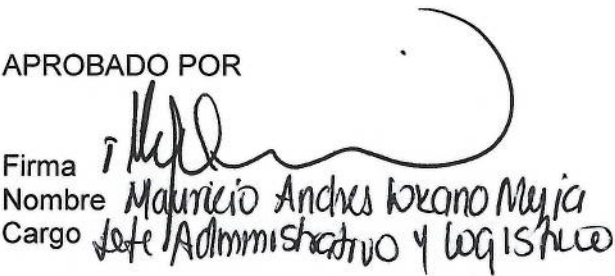 APROBADO POR
Firma
Nombre Mauricio Andres Lozano Mejia
Cargo Jefe Administrativo y Logistico